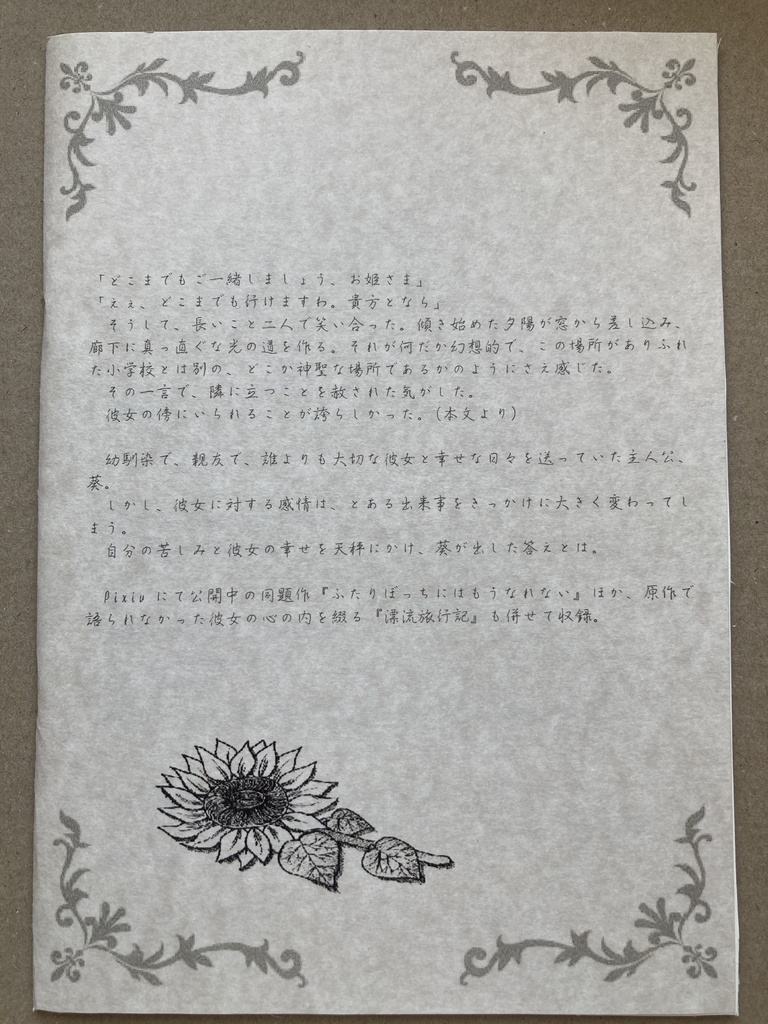 「どこまでもご一緒しましょう、お姫さま」
「ええ、どこまでも行けますわ。貴方となら」
そうして、長いこと二人で笑い合った。傾き始めた夕陽が窓から差し込み、
廊下に真っ直ぐな光の道を作る。それが何だか幻想的で、この場所がありふれ
た小学校とは別の、どこか神聖な場所であるかのようにさえ感じた。
その一言で、隣に立つことを赦された気がした。
彼女の傍にいられることが誇らしかった。(本文より)
幼馴染で、親友で、誰よりも大切な彼女と幸せな日々を送っていた主人公、
葵。
しかし、彼女に対する感情は、とある出来事をきっかけに大きく変わってし
まう。
自分の苦しみと彼女の幸せを天秤にかけ、葵が出した答えとは。
Pixivにて公開中の同題作『ふたりぼっちにはもうなれない』ほか、原作で
語られなかった彼女の心の内を綴る『漂流旅行記』も併せて収録。